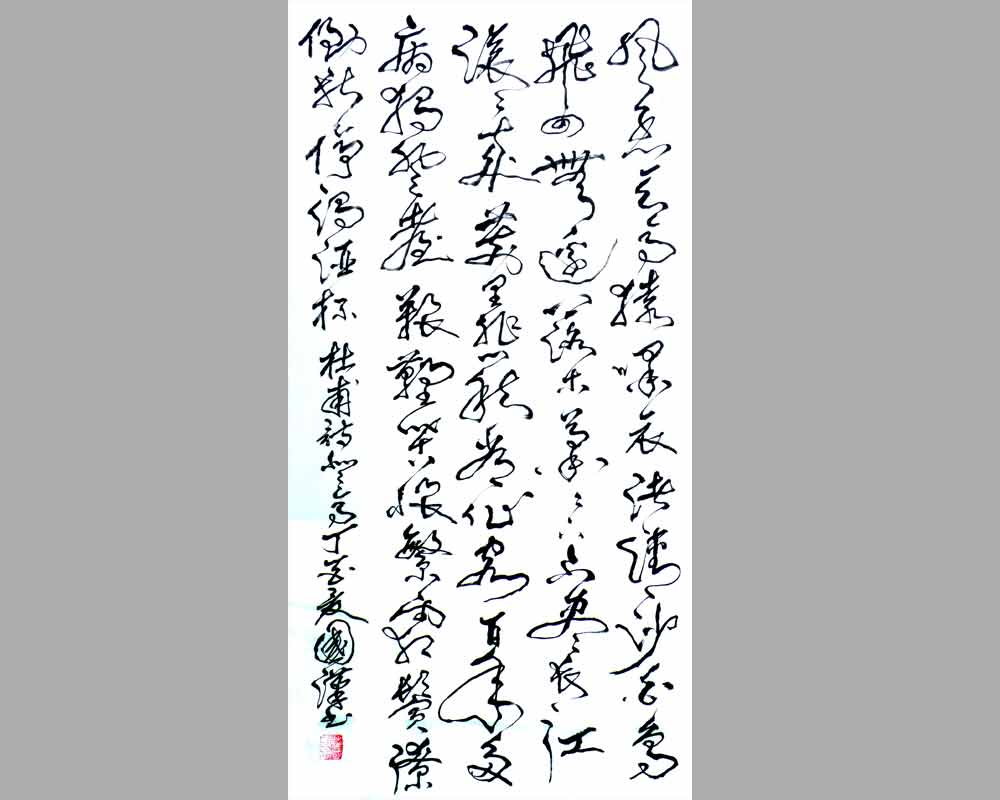 風急天高猿嘯哀渚清沙白鳥
飛回無邊落木蕭〻下不盡長江
滾〻來萬里悲秋常作客百年多
病獨登臺艱難苦恨繁霜鬢潦
倒新停濁酒杯 杜甫詩登高丁夏國漢书